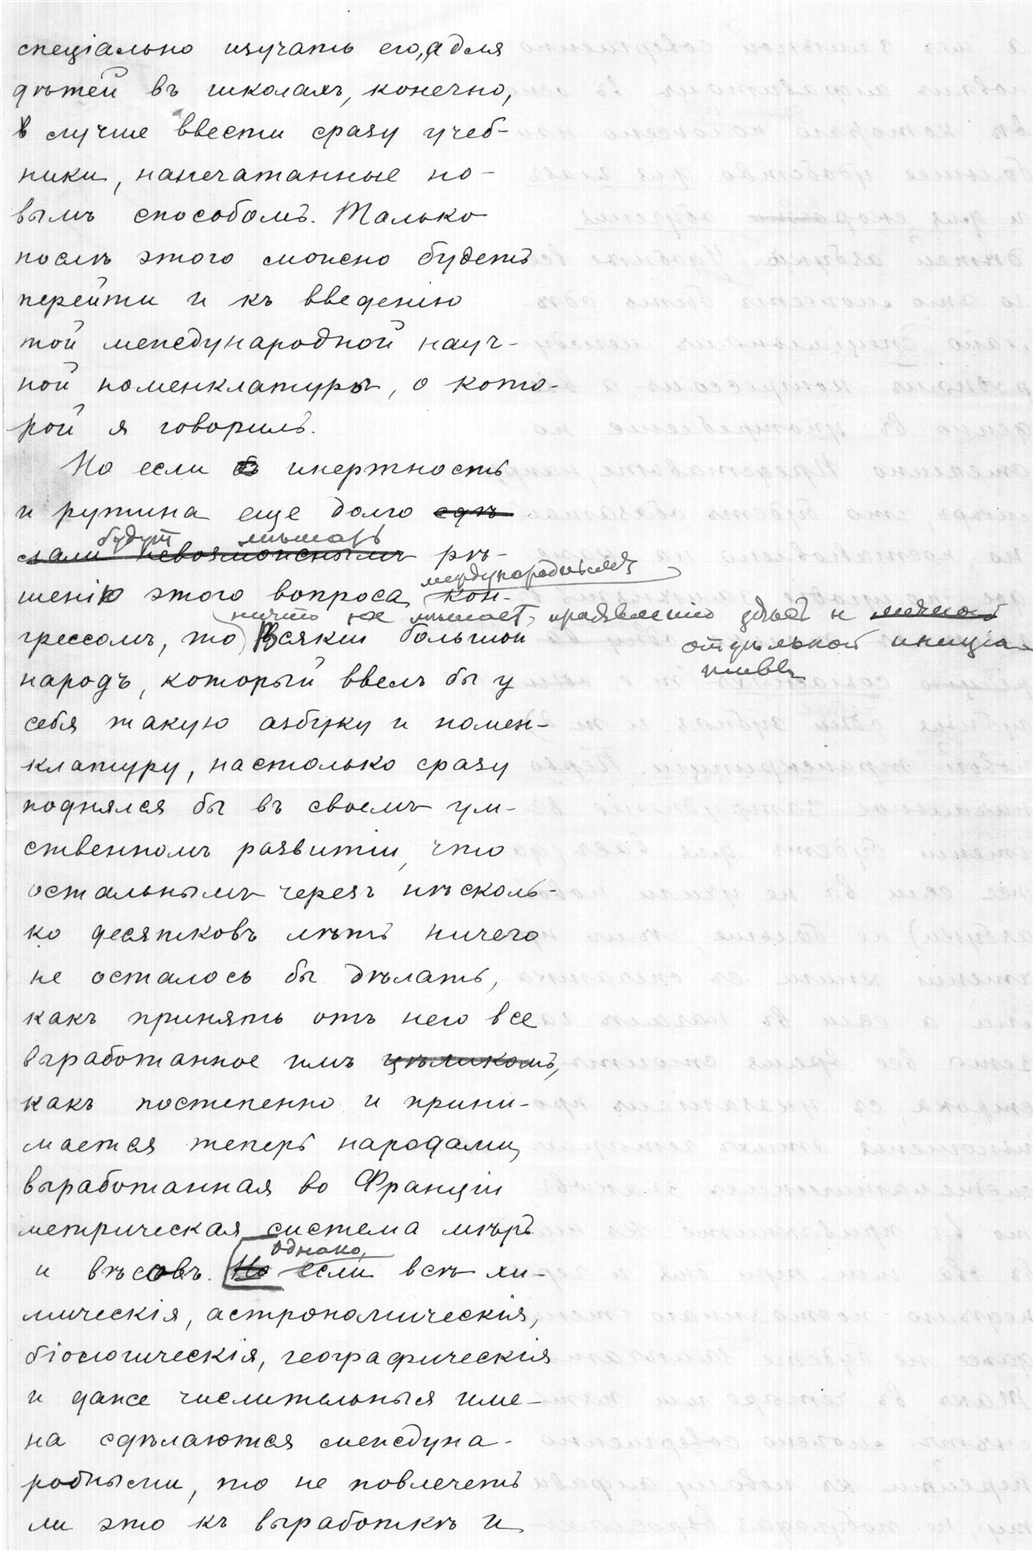 спеціально изучать его, а для
дѣтей въ школахъ, конечно,
лучше ввести сразу учеб-
ники, напечатанные но-
вымъ способомъ. Только
послѣ этого можно будетъ
перейти и къ введенію
той международной науч-
ной номенклатуры, о кото-
рой я говорилъ.
Но если инертность
и рутина еще долго сдѣ-
будутъ мѣшать
лали невозможнымъ рѣ-
международнымъ
шенію этого вопроса кон-
ничто не мѣшаетъ проявленію здѣсь и личной
грессомъ, то Всякій большой
отдѣльной иниціа-
тивы
народъ, который ввелъ бы у
себя такую азбуку и номен-
клатуру, настолько сразу
поднялся бы въ своемъ ум-
ственномъ развитіи, что
остальнымъ черезъ нѣсколь-
ко десятковъ лѣтъ ничего
не осталось бы дѣлать,
какъ принять отъ него все
выработанное имъ цѣликомъ,
какъ постепенно и прини-
мается теперь народами
выработанная во Франціи
метрическая система мѣръ
однако,
и вѣсовъ. Но если всѣ хи-
мическія, астрономическія,
біологическія, географическія
и даже числительныя име-
на сдѣлаются междуна-
родными, то не повлечетъ
ли это къ выработкѣ и